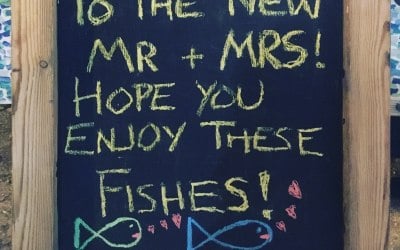 TO THE NEW
MR + MRS!
HOPE YOU
ENJOY THESE
FISHES!